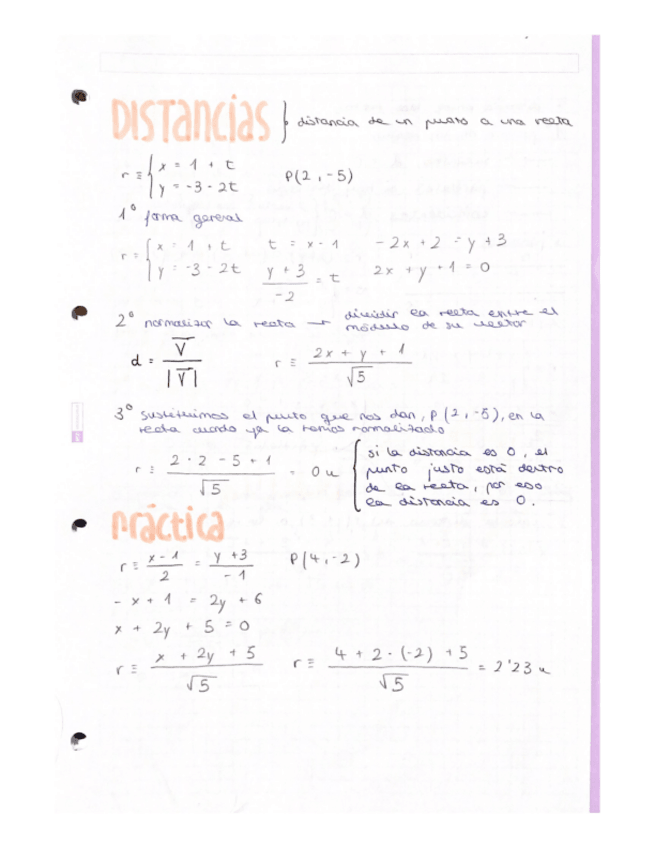 DISTANCIAS } distancia de un punto a una recta
r ≡ { x = 1 + t
y = -3 - 2t
P(2, -5)
1º forma general
r = { x = 1 + t
y = -3 - 2t
t = x - 1
y + 3 / -2 = t
-2x + 2 = y + 3
2x + y + 1 = 0
2º normalizar la recta → dividir la recta entre el
módulo de su vector
d = V / |V|
r ≡ 2x + y + 1 / √5
3º sustituimos el punto que nos dan, P(2, -5), en la
recta cuando ya la temos normalizado
r ≡ 2 · 2 - 5 + 1 / √5 = 0 u
{ si la distancia es 0, el
punto justo está dentro
de la recta, por eso
la distancia es 0.
Práctica
r ≡ x - 1 / 2 = y + 3 / -1
P(4, -2)
- x + 1 = 2y + 6
x + 2y + 5 = 0
r ≡ x + 2y + 5 / √5
r ≡ 4 + 2 · (-2) + 5 / √5 = 2'23 u